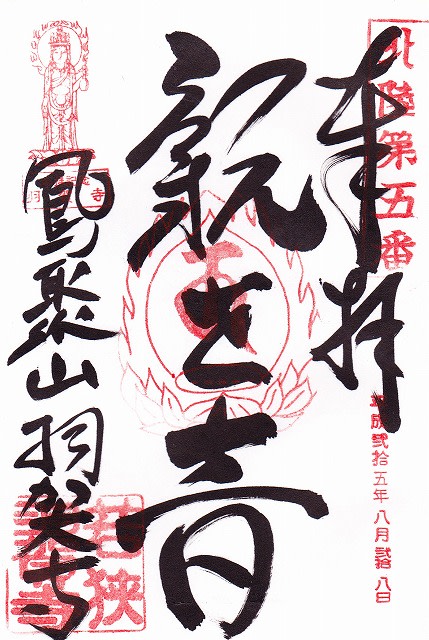 北陸第五番
奉拝
平成弐拾五年八月弐拾八日
観世音
鳳聚山羽賀寺
若狭
羽賀寺